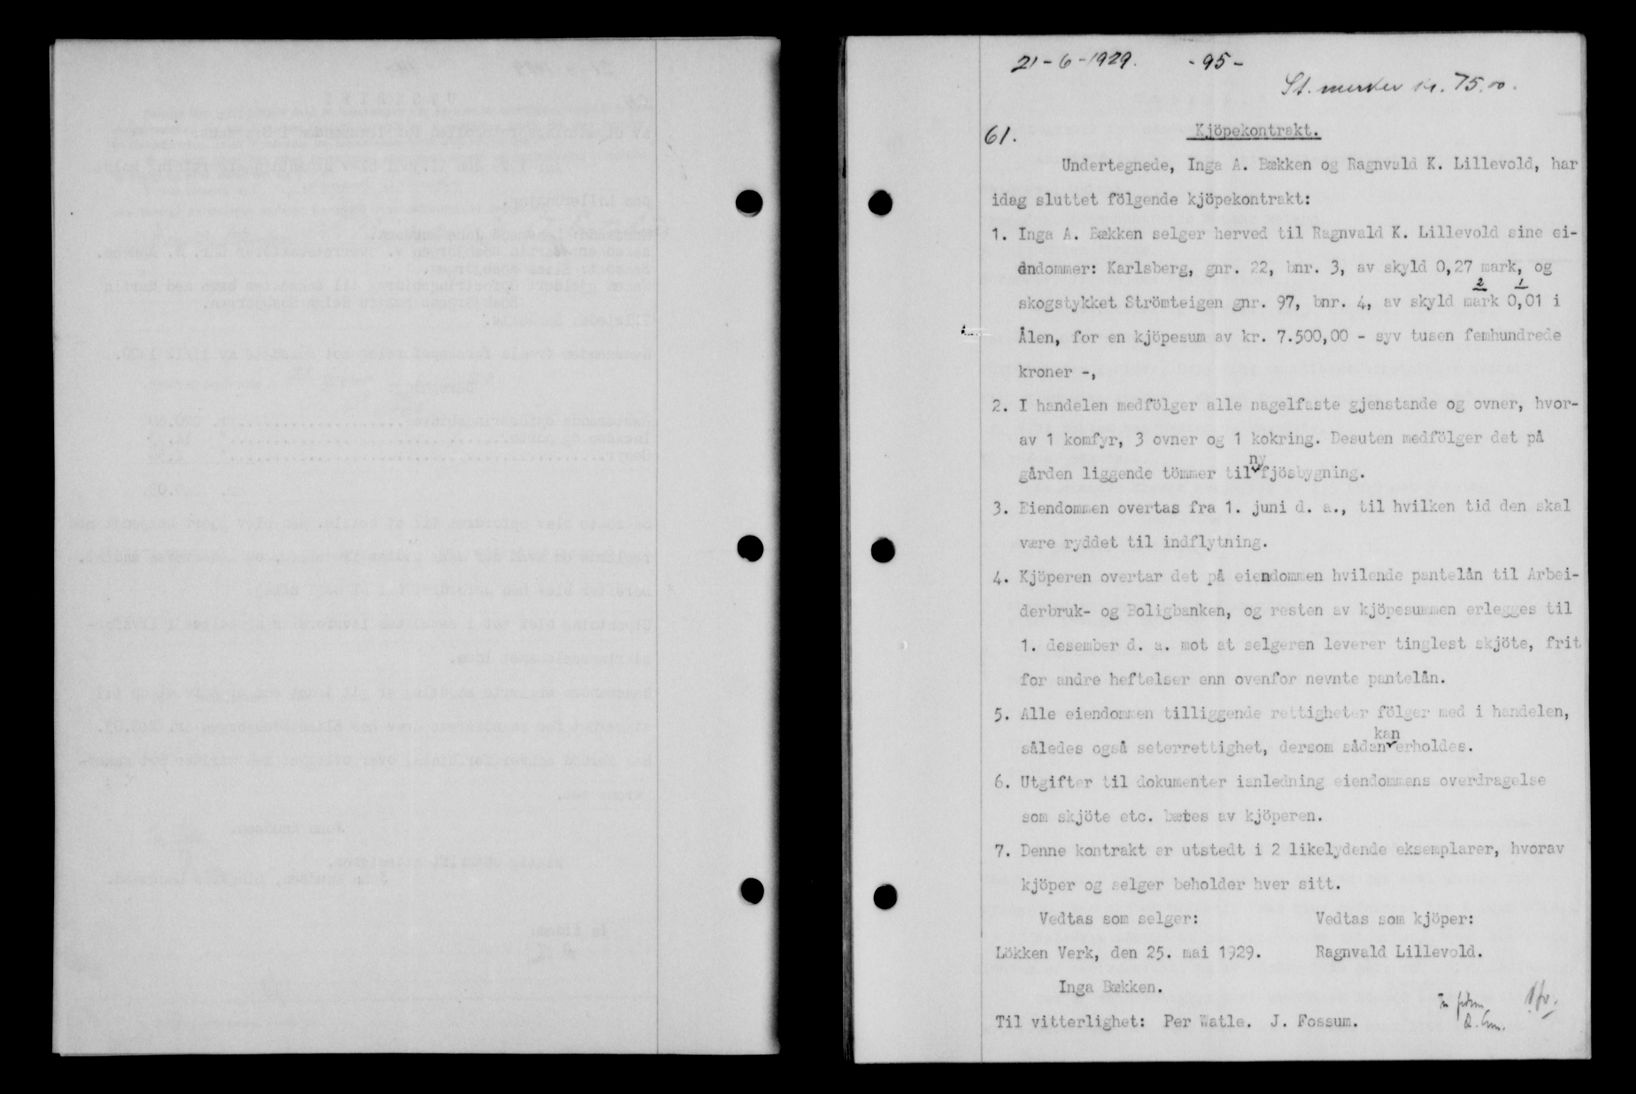 21-6-1929. -95-
St. merker kr. 75.00.
61. Kjöpekontrakt.
Undertegnede, Inga A. Bækken og Ragnvald K. Lillevold, har
idag sluttet fölgende kjöpekontrakt:
1. Inga A. Bækken selger herved til Ragnvald K. Lillevold sine ei-
dndommer: Karlsberg, gnr. 22, bnr. 3, av skyld 0,27 mark, og
2 1
skogstykket Strömteigen gnr. 97, bnr. 4, av skyld mark 0,01 i
Ålen, for en kjöpesum av kr. 7.500,00 - syv tusen femhundrede
kroner -,
2. I handelen medfölger alle nagelfaste gjenstande og ovner, hvor-
av 1 komfyr, 3 ovner og 1 kokring. Desuten medfölger det på
ny
gården liggende tömmer til fjösbygning.
3. Eiendommen overtas fra 1. juni d. a., til hvilken tid den skal
være ryddet til indflytning.
4. Kjöperen overtar det på eiendommen hvilende pantelån til Arbei-
derbruk- og Boligbanken, og resten av kjöpesummen erlegges til
1. desember d. a. mot at selgeren leverer tinglest skjöte, frit
for andre heftelser enn ovenfor nevnte pantelån.
5. Alle eiendommen tilliggende rettigheter fölger med i handelen,
kan
således også seterrettighet, dersom sådan erholdes.
6. Utgifter til dokumenter ianledning eiendommens overdragelse
som skjöte etc. bæres av kjöperen.
7. Denne kontrakt er utstedt i 2 likelydende eksemplarer, hvorav
kjöper og selger beholder hver sitt.
Vedtas som selger: Vedtas som kjöper:
Lökken Verk, den 25. mai 1929. Ragnvald Lillevold.
Inga Bækken.
Til vitterlighet: Per Watle. J. Fossum.